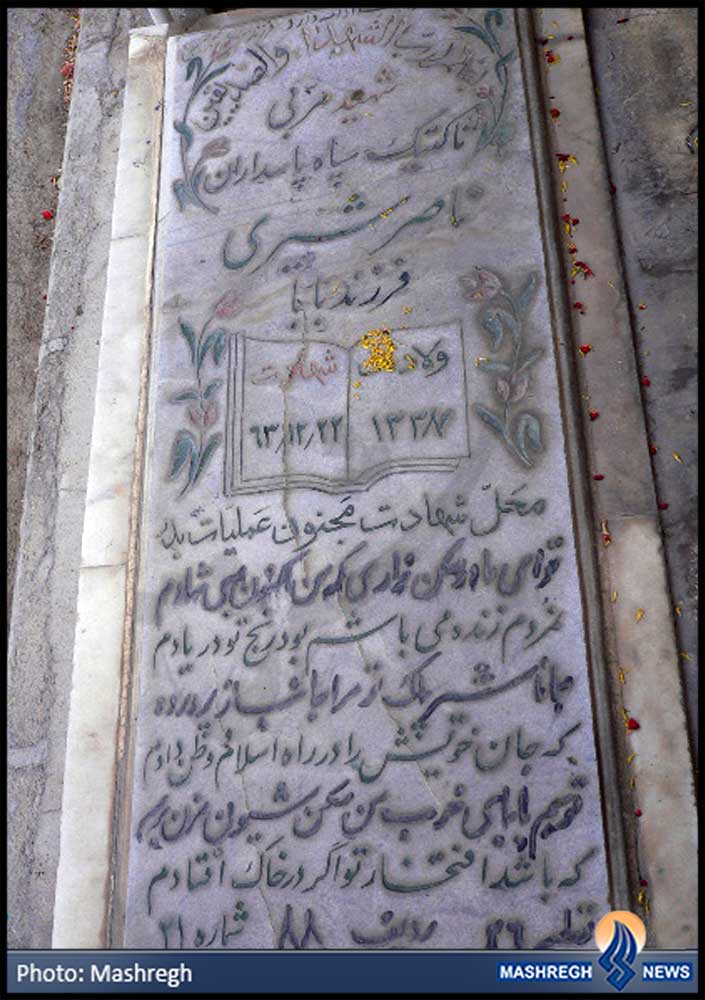 الشهداء والصدیقین
شهید مربی
تاکتیک سپاه پاسداران
ناصر شیری
فرزند بابا
ولادت شهادت
۱۳۳۸ ۶۳٫۱۲٫۲۲
محل شهادت مجنون عملیات بدر
تو ای مادر مکن زاری که من اکنون بسی شادم
نمردم زنده می باشم بود رنج تو در یادم
جانا شیر پاک تو مرا جانباز پرورده
که جان خویش را در راه اسلام و وطن دادم
تو هم بابای خوب من مکن شیون مزن بر سر
که باشد افتخار تو اگر در خاک افتادم
قطعه ۲۶ ردیف ۸۸ شماره ۲۱
Photo: Mashregh
MASHREGH NEWS